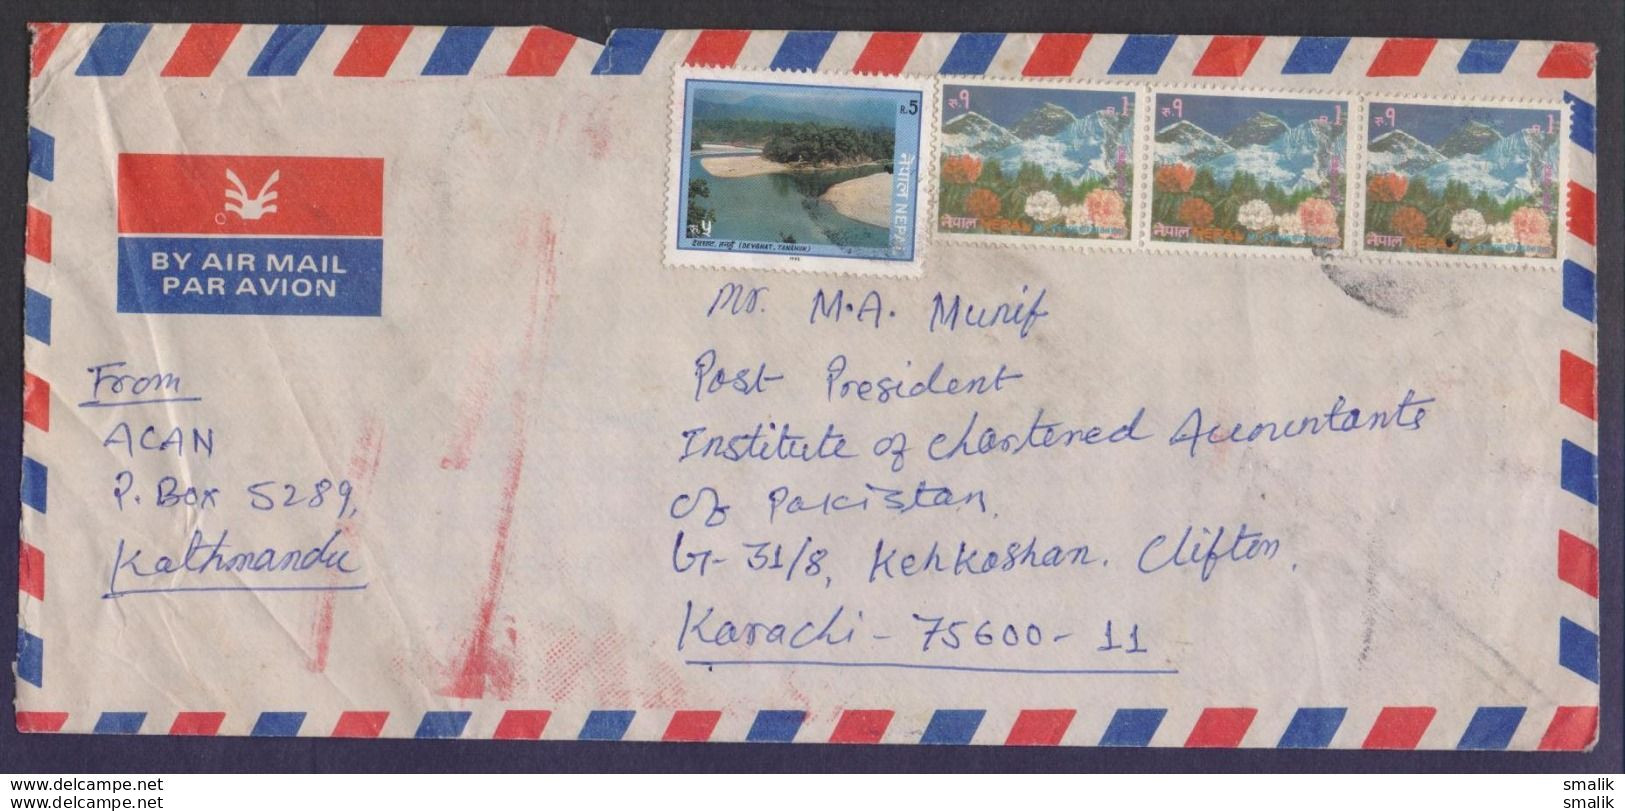 R.5
नेपाल NEPAL
रु ५
देवघाट, तनहुँ (DEVGHAT, TANAHUN)
रु.१
नेपाल NEPAL
रु.१
नेपाल NEPAL
रु.१
नेपाल NEPAL
BY AIR MAIL
PAR AVION
From
ACAN
P. Box 5289,
Kathmandu
Mr. M.A. Munif
Past President
Institute of Chartered Accountants
of Pakistan.
G-31/8, Kehkashan. Clifton,
Karachi - 75600 - 11
www.delcampe.net
smalik
www.delcampe.net
smalik